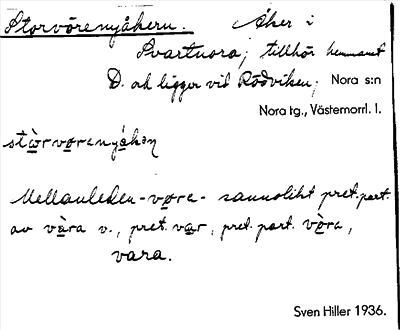 Storvörenyåkern. Åker i
Svartnora; tillhör hemmanet
D. och ligger vid Rödviken; Nora s:n
Nora tg., Västernorrl. l.
stòrvorenyåkən
Mellanleden -vøra- sannolikt pret.part.
av vàra v., pret. var, pret. part. vòra,
vara.
Sven Hiller 1936.